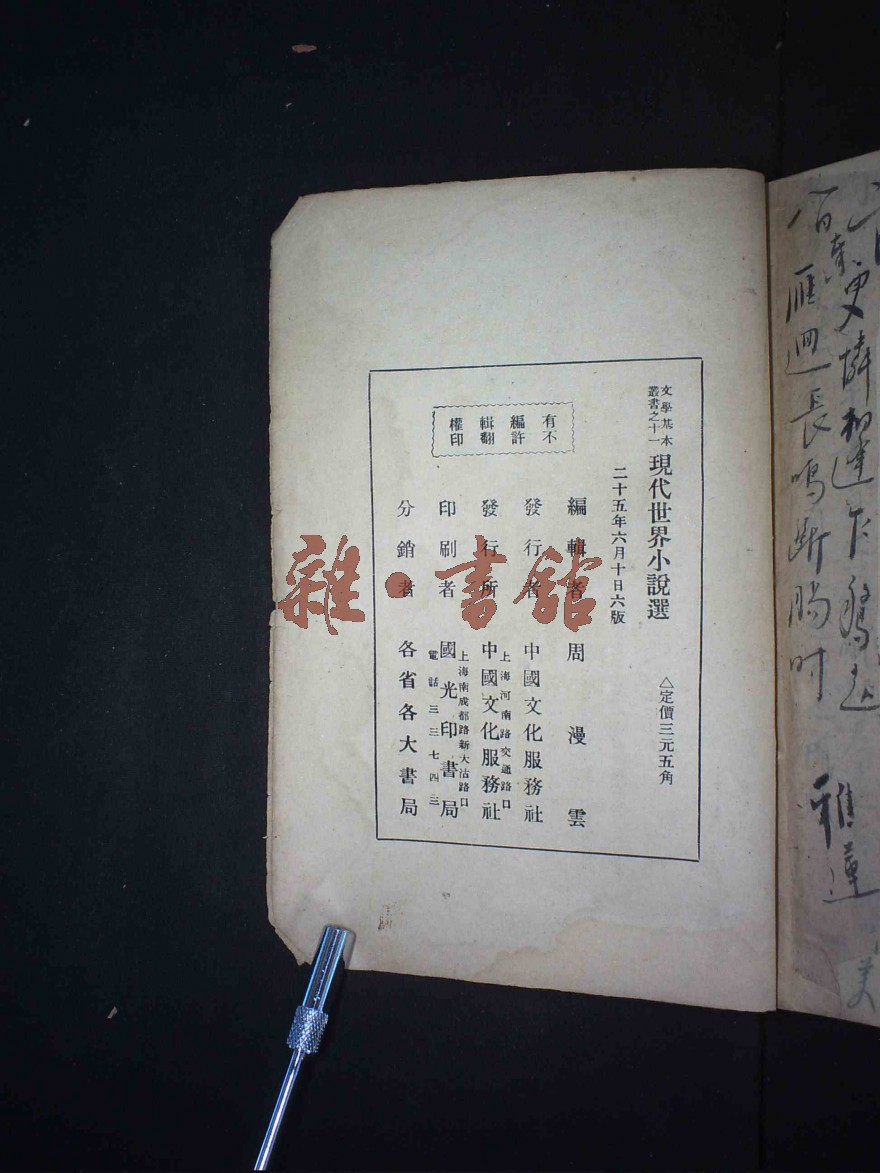 文學基本
叢書之十一
現代世界小說選
△定價三元五角
二十五年六月十日六版
編輯者 周漫雲
發行者 中國文化服務社
上海河南路交通路口
發行所 中國文化服務社
上海南成都路新大沽路口
印刷者 國光印書局
電話三三七四三
分銷者 各省各大書局
有不
編許
輯翻
權印
雜·書館
雁迴長鳴斷腸時